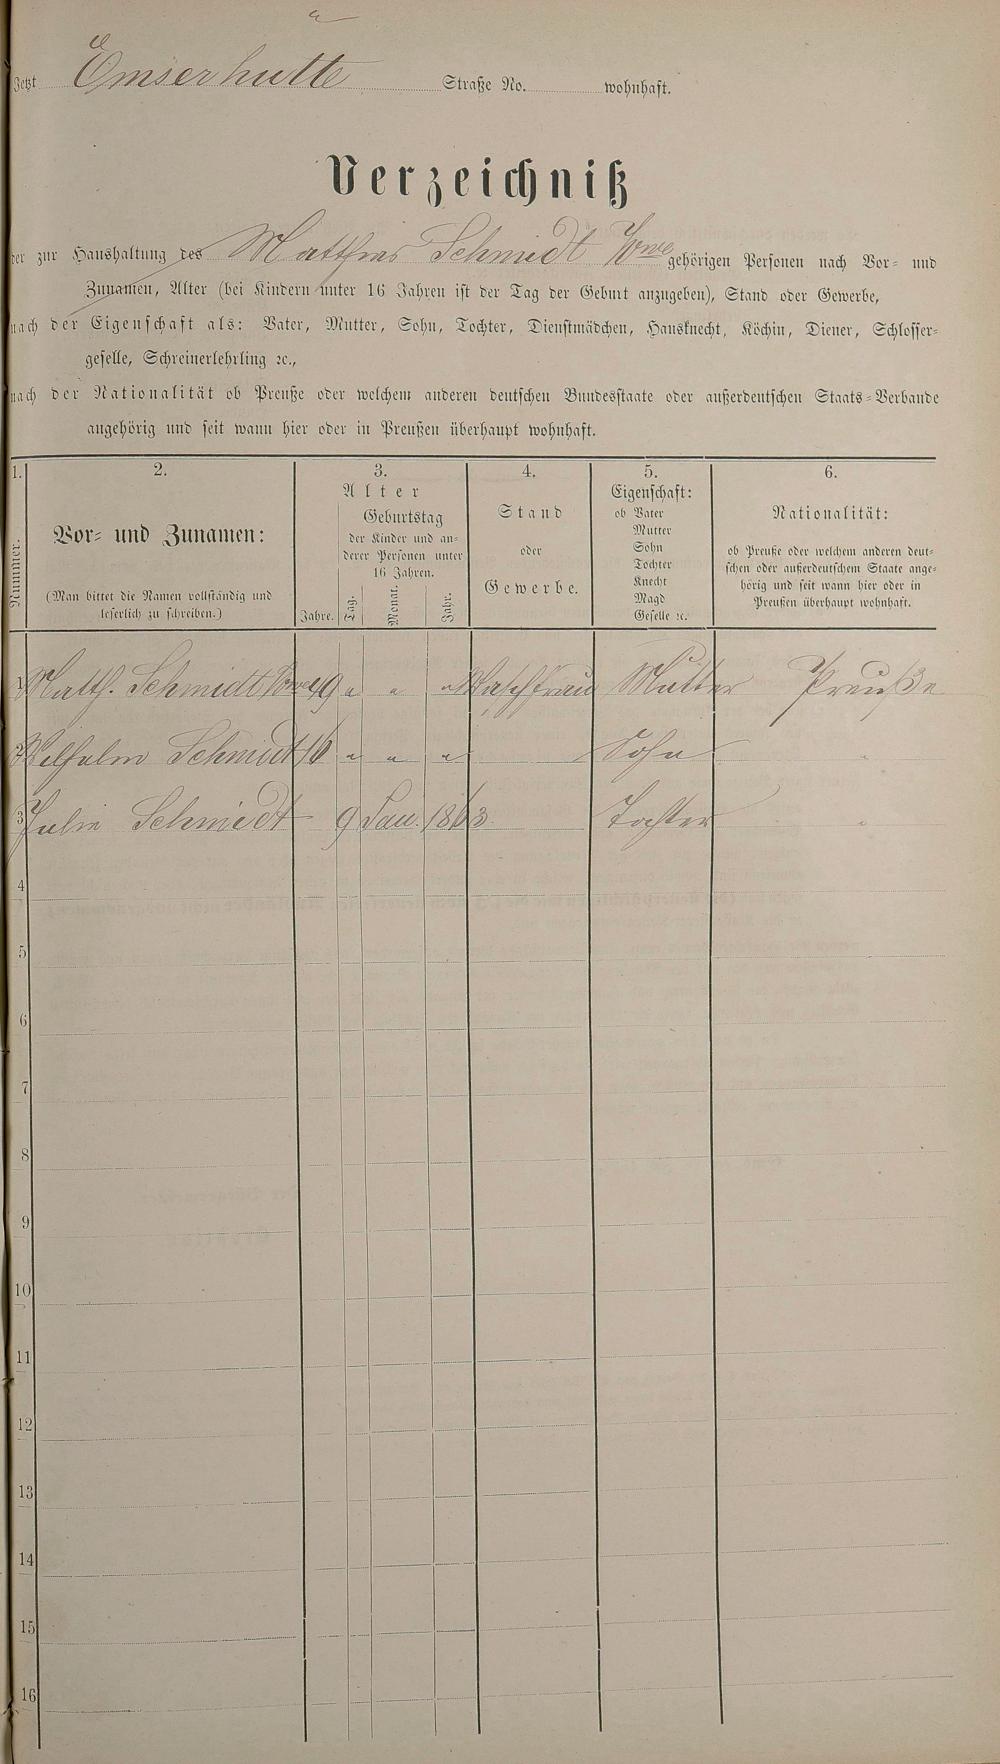 Jetzt Emserhütte Straße No. wohnhaft.
Verzeichniß
der zur Haushaltung des Matthias Schmidt Wwe gehörigen Personen nach Vor- und
Zunamen, Alter (bei Kindern unter 16 Jahren ist der Tag der Geburt anzugeben), Stand oder Gewerbe,
nach der Eigenschaft als: Vater, Mutter, Sohn, Tochter, Dienstmädchen, Hausknecht, Köchin, Diener, Schlosser-
geselle, Schreinerlehrling ꝛc.,
nach der Nationalität ob Preuße oder welchem anderen deutschen Bundesstaate oder außerdeutschen Staats-Verbande
angehörig und seit wann hier oder in Preußen überhaupt wohnhaft.
1. 2. 3. 4. 5. 6.
Nummer.
Vor- und Zunamen:
(Man bittet die Namen vollständig und
leserlich zu schreiben.)
Alter
Geburtstag
der Kinder und an-
derer Personen unter
16 Jahren.
Jahre. Tag. Monat. Jahr.
Stand
oder
Gewerbe.
Eigenschaft:
ob Vater
Mutter
Sohn
Tochter
Knecht
Magd
Geselle ꝛc.
Nationalität:
ob Preuße oder welchem anderen deut-
schen oder außerdeutschem Staate ange-
hörig und seit wann hier oder in
Preußen überhaupt wohnhaft.
1 Matth. Schmidt Wwe 49 " " " Waschfrau Mutter Preuße
2 Wilhelm Schmidt 16 " " " Sohn "
3 Julie Schmidt 9 Jan. 1863 Tochter "
4
5
6
7
8
9
10
11
12
13
14
15
16